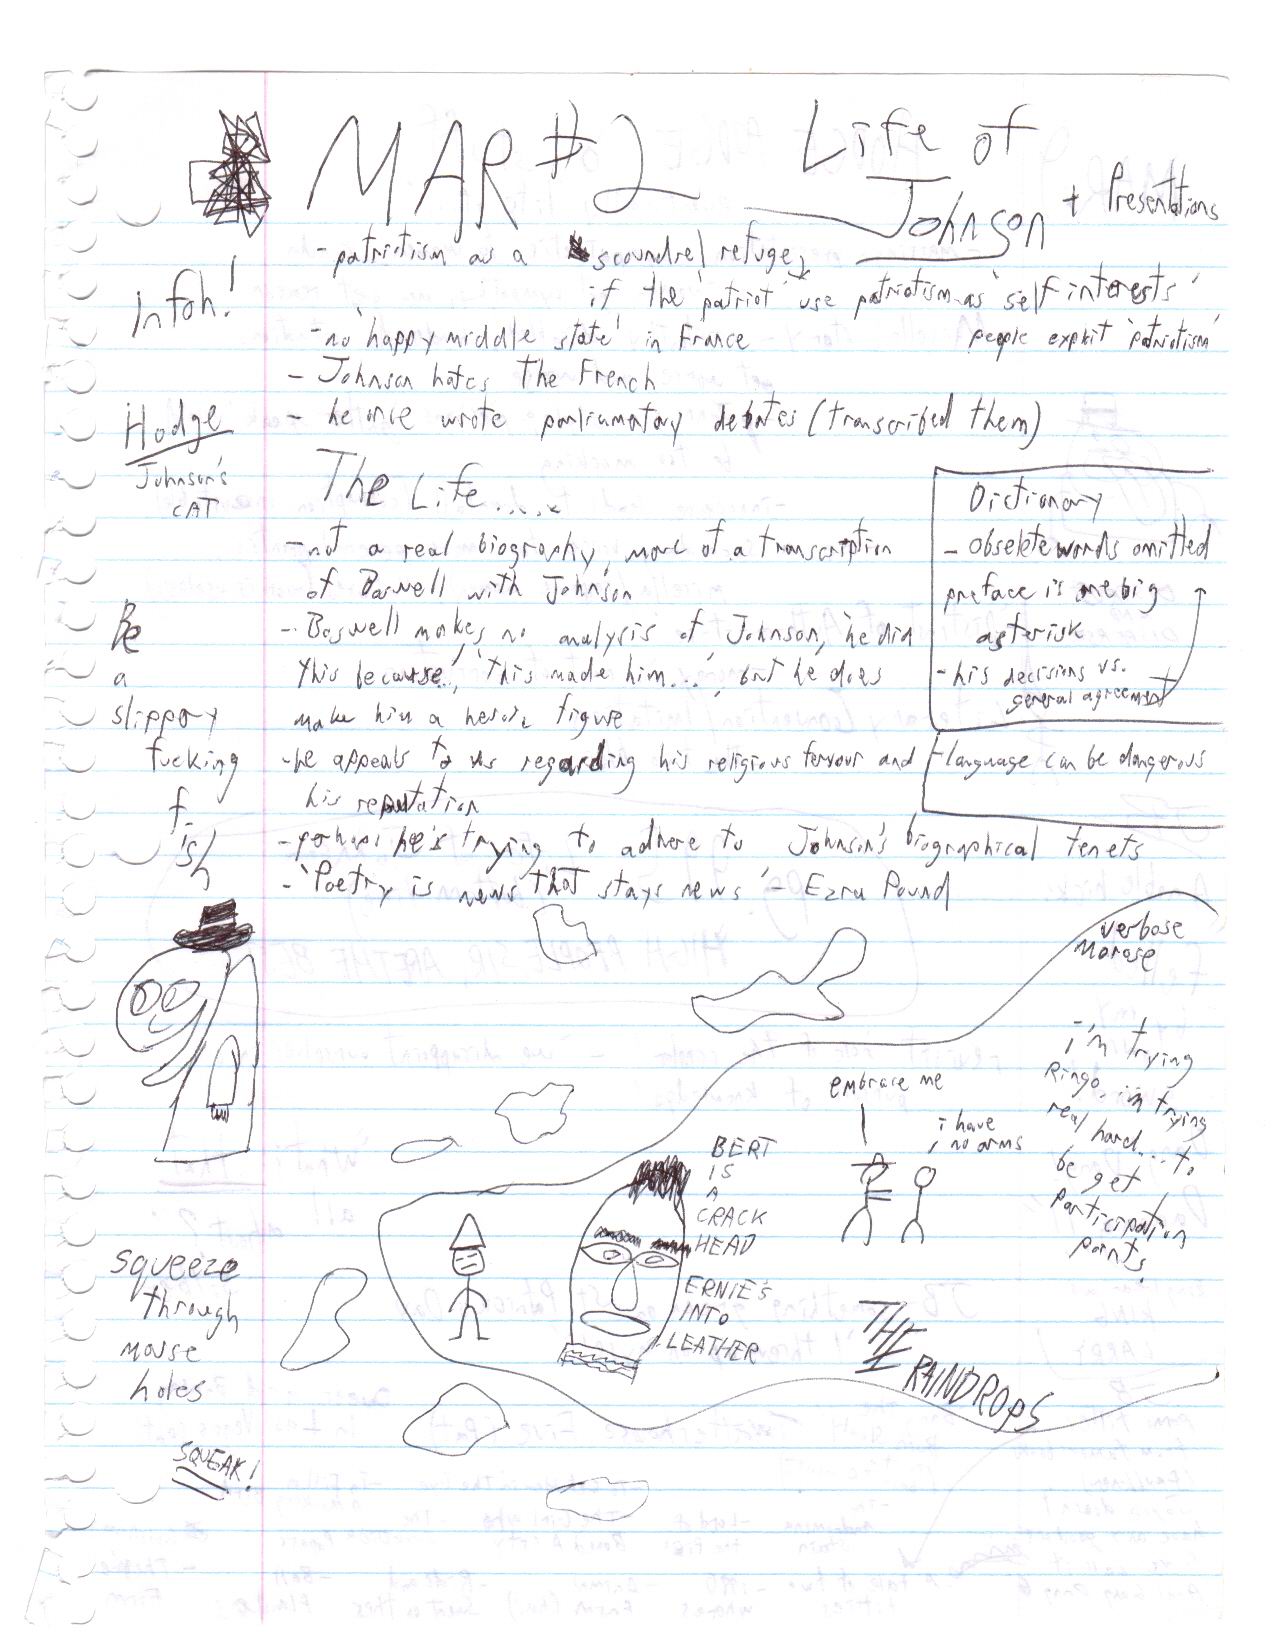 MAR #2
Life of
Johnson + Presentations
Infoh!
- patriotism as a scoundrel refuge,
if the 'patriot' use patriotism as 'self interests'
people exploit 'patriotism'
- no 'happy middle state' in France
- Johnson hates the French
- he once wrote parliamentary debates (transcribed them)
Hodge
Johnson's
CAT
The Life.....
- not a real biography, more of a transcription
of Boswell with Johnson
- Boswell makes no analysis of Johnson, 'he did
this because', 'this made him...', but he does
make him a heroic figure
- he appeals to us regarding his religious fervour and
his reputation
- perhaps he's trying to adhere to Johnson's biographical tenets
- 'Poetry is news that stays news' - Ezra Pound
Dictionary
- obselete words omitted
preface is one big
asterisk
- his decisions vs.
general agreement
- language can be dangerous
Be
a
slippery
fucking
f-
ish
verbose
morose
embrace me
i have
no arms
- i'm trying
Ringo, i'm trying
real hard... to
be get
participation
points!
BERT
IS
A
CRACK
HEAD
ERNIE'S
INTO
LEATHER
THE
RAINDROPS
squeeze
through
mouse
holes
SQUEAK!